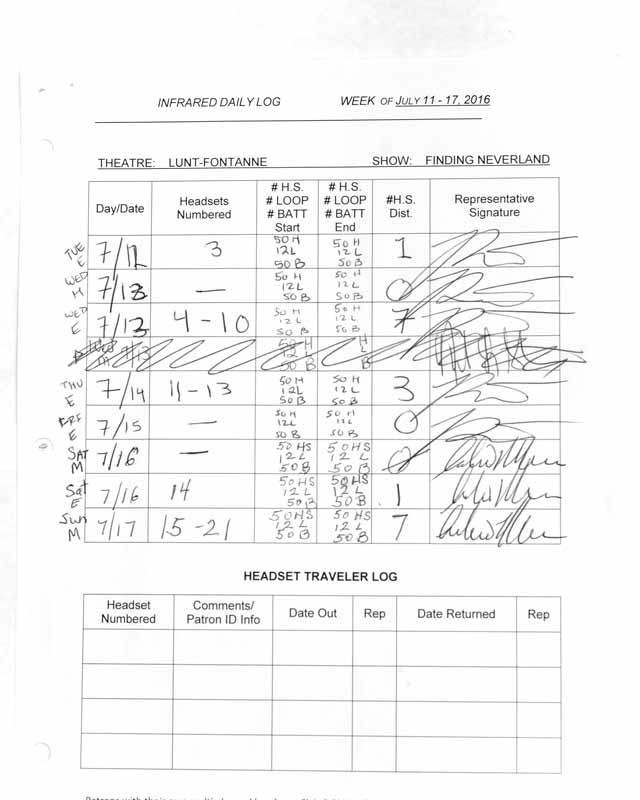 INFRARED DAILY LOG WEEK OF JULY 11 - 17, 2016
THEATRE: LUNT-FONTANNE SHOW: FINDING NEVERLAND
Day/Date Headsets Numbered # H.S. # LOOP # BATT Start # H.S. # LOOP # BATT End #H.S. Dist. Representative Signature
TUE E 7/12 3 50 H 12 L 50 B 50 H 12 L 50 B 1
WED M 7/13 — 50 H 12 L 50 B 50 H 12 L 50 B 0
WED E 7/13 4 - 10 50 H 12 L 50 B 50 H 12 L 50 B 7
THU E 7/14 11 - 13 50 H 12 L 50 B 50 H 12 L 50 B 3
FRI E 7/15 — 50 H 12 L 50 B 50 H 12 L 50 B 0
SAT M 7/16 — 50 HS 12 L 50 B 50 HS 12 L 50 B 0
Sat E 7/16 14 50 HS 12 L 50 B 50 HS 12 L 50 B 1
Sun M 7/17 15 - 21 50 HS 12 L 50 B 50 HS 12 L 50 B 7
HEADSET TRAVELER LOG
Headset Numbered Comments/ Patron ID Info Date Out Rep Date Returned Rep